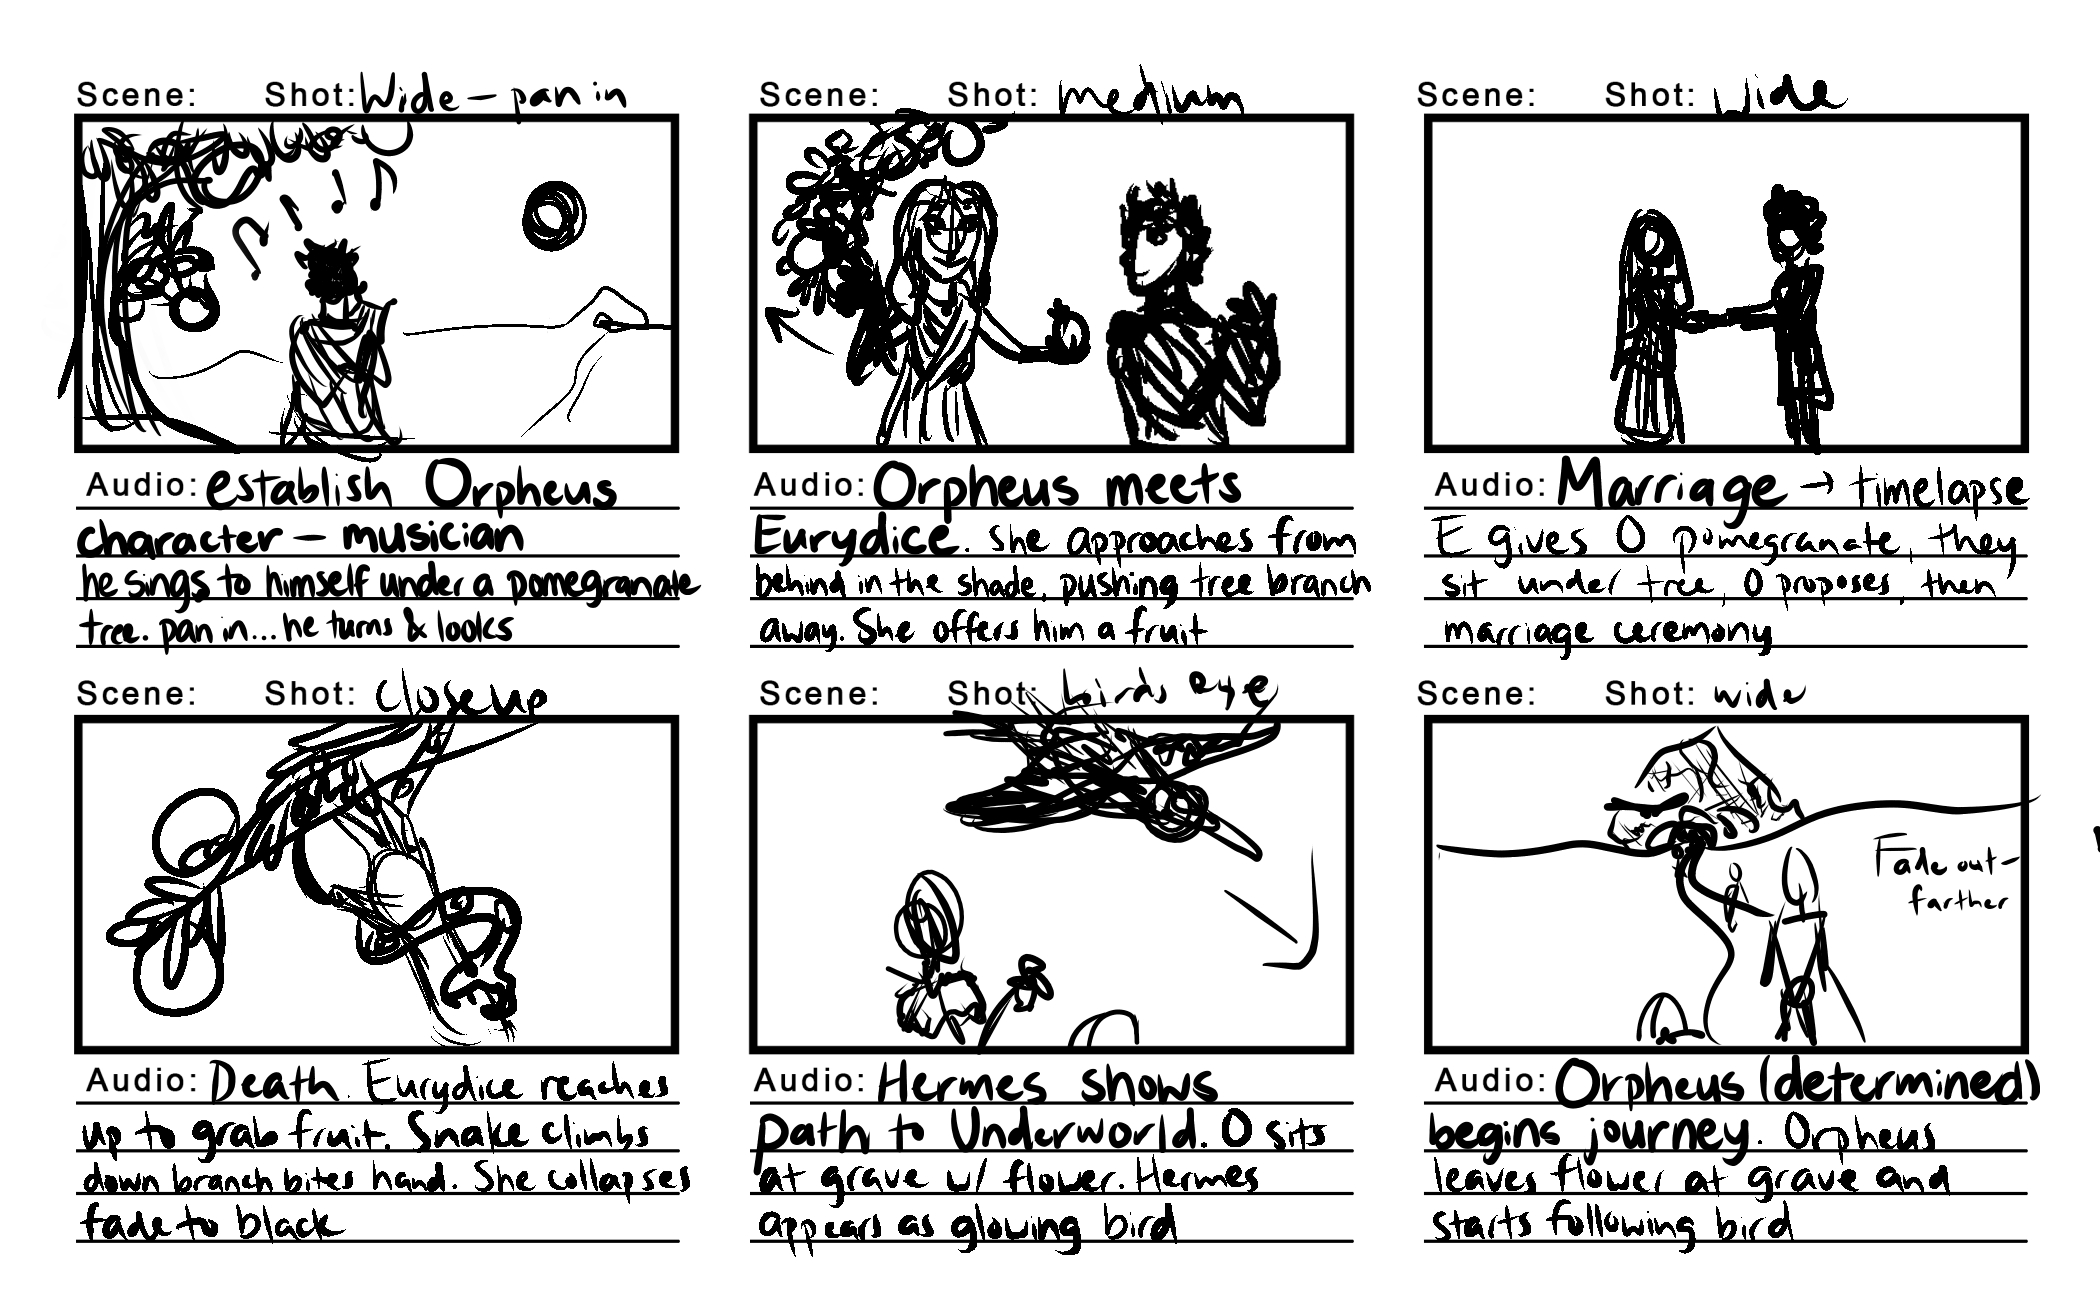 Scene: Shot: Wide - pan in
Audio: establish Orpheus
character - musician
he sings to himself under a pomegranate
tree. pan in... he turns & looks
Scene: Shot: medium
Audio: Orpheus meets
Eurydice. She approaches from
behind in the shade, pushing tree branch
away. She offers him a fruit
Scene: Shot: Wide
Audio: Marriage → timelapse
E gives O pomegranate, they
sit under tree, O proposes, then
marriage ceremony
Scene: Shot: Close up
Audio: Death. Eurydice reaches
up to grab fruit. Snake climbs
down branch bites hand. She collapses
fade to black
Scene: Shot: birds eye
Audio: Hermes shows
path to Underworld. O sits
at grave w/ flower. Hermes
appears as glowing bird
Scene: Shot: wide
Fade out -
farther
Audio: Orpheus (determined)
begins journey. Orpheus
leaves flower at grave and
starts following bird